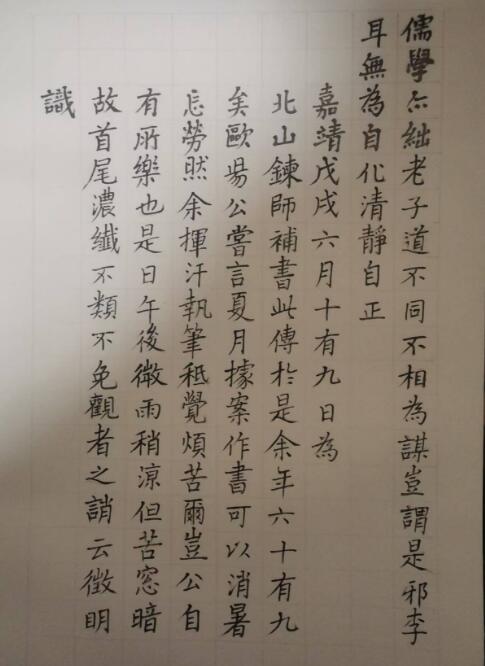 儒學亦絀老子道不同不相為謀豈謂是邪李
耳無為自化清靜自正
嘉靖戊戌六月十有九日為
北山鍊師補書此傳於是余年六十有九
矣歐昜公嘗言夏月據案作書可以消暑
忘勞然余揮汗執筆秪覺煩苦爾豈公自
有所樂也是日午後微雨稍涼但苦窓暗
故首尾濃纖不類不免觀者之誚云徵明
識